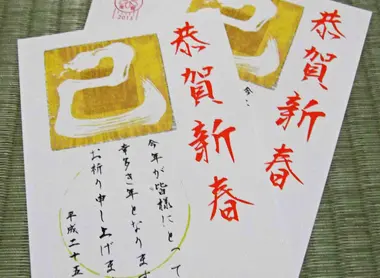 恭賀新春
巳
今年が皆様にとって
幸多き年となります
お祈り申し上げま
平成二十五
2013
恭賀新春
今